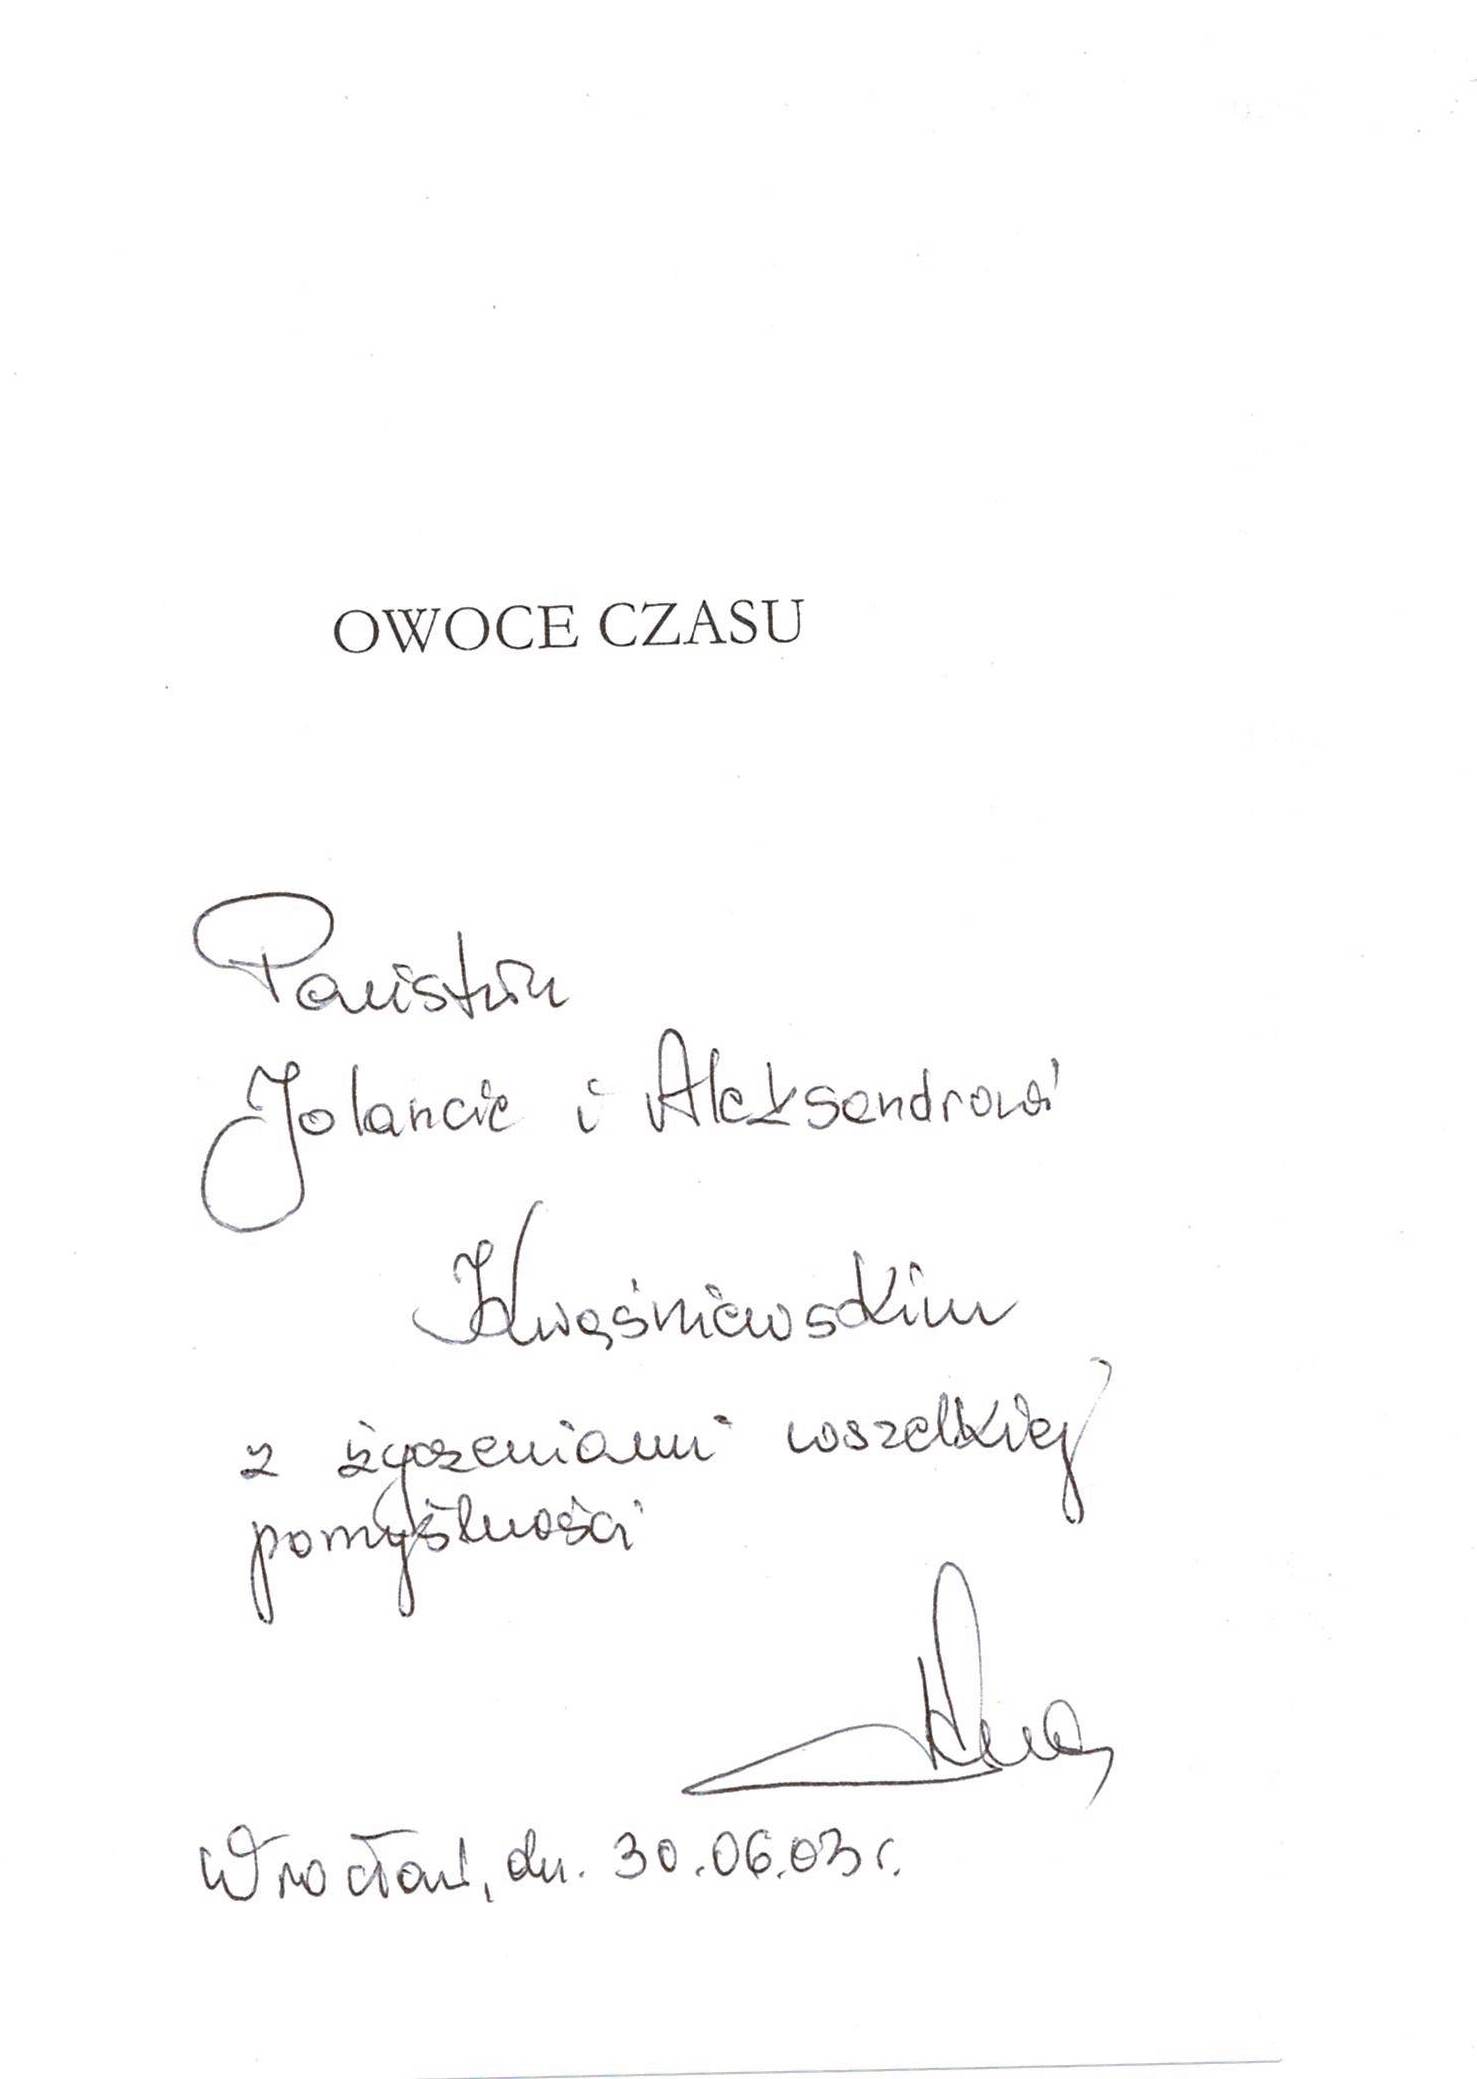 OWOCE CZASU
Państwu
Jolancie i Aleksandrowi
Kwaśniewskim
z życzeniami wszelkiej
pomyślności
Wrocław, dn. 30.06.03 r.